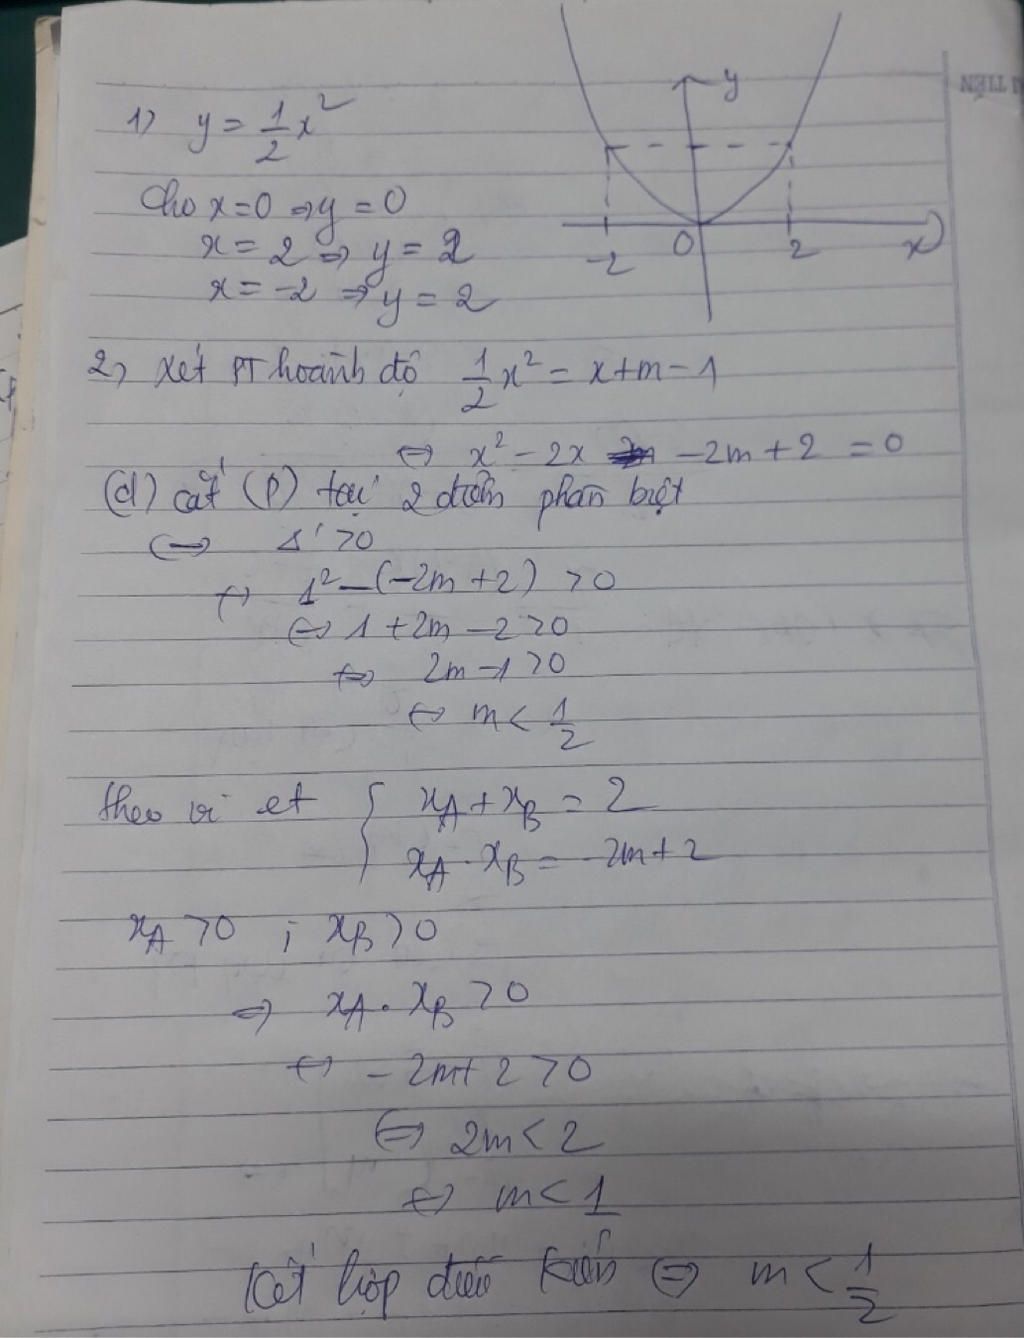 1) y = 1/2 x²
Cho x = 0 ⇒ y = 0
x = 2 ⇒ y = 2
x = -2 ⇒ y = 2
y
-2 0 2 x
2) Xét PT hoành độ 1/2 x² = x + m - 1
⇔ x² - 2x - 2m + 2 = 0
(d) cắt (P) tại 2 điểm phân biệt
⇔ Δ' > 0
⇔ 1² - (-2m + 2) > 0
⇔ 1 + 2m - 2 > 0
⇔ 2m - 1 > 0
⇔ m < 1/2
theo vi et { x_A + x_B = 2
x_A . x_B = -2m + 2
x_A > 0 ; x_B > 0
⇒ x_A . x_B > 0
⇔ -2m + 2 > 0
⇔ 2m < 2
⇔ m < 1
Kết hợp điều kiện ⇔ m < 1/2